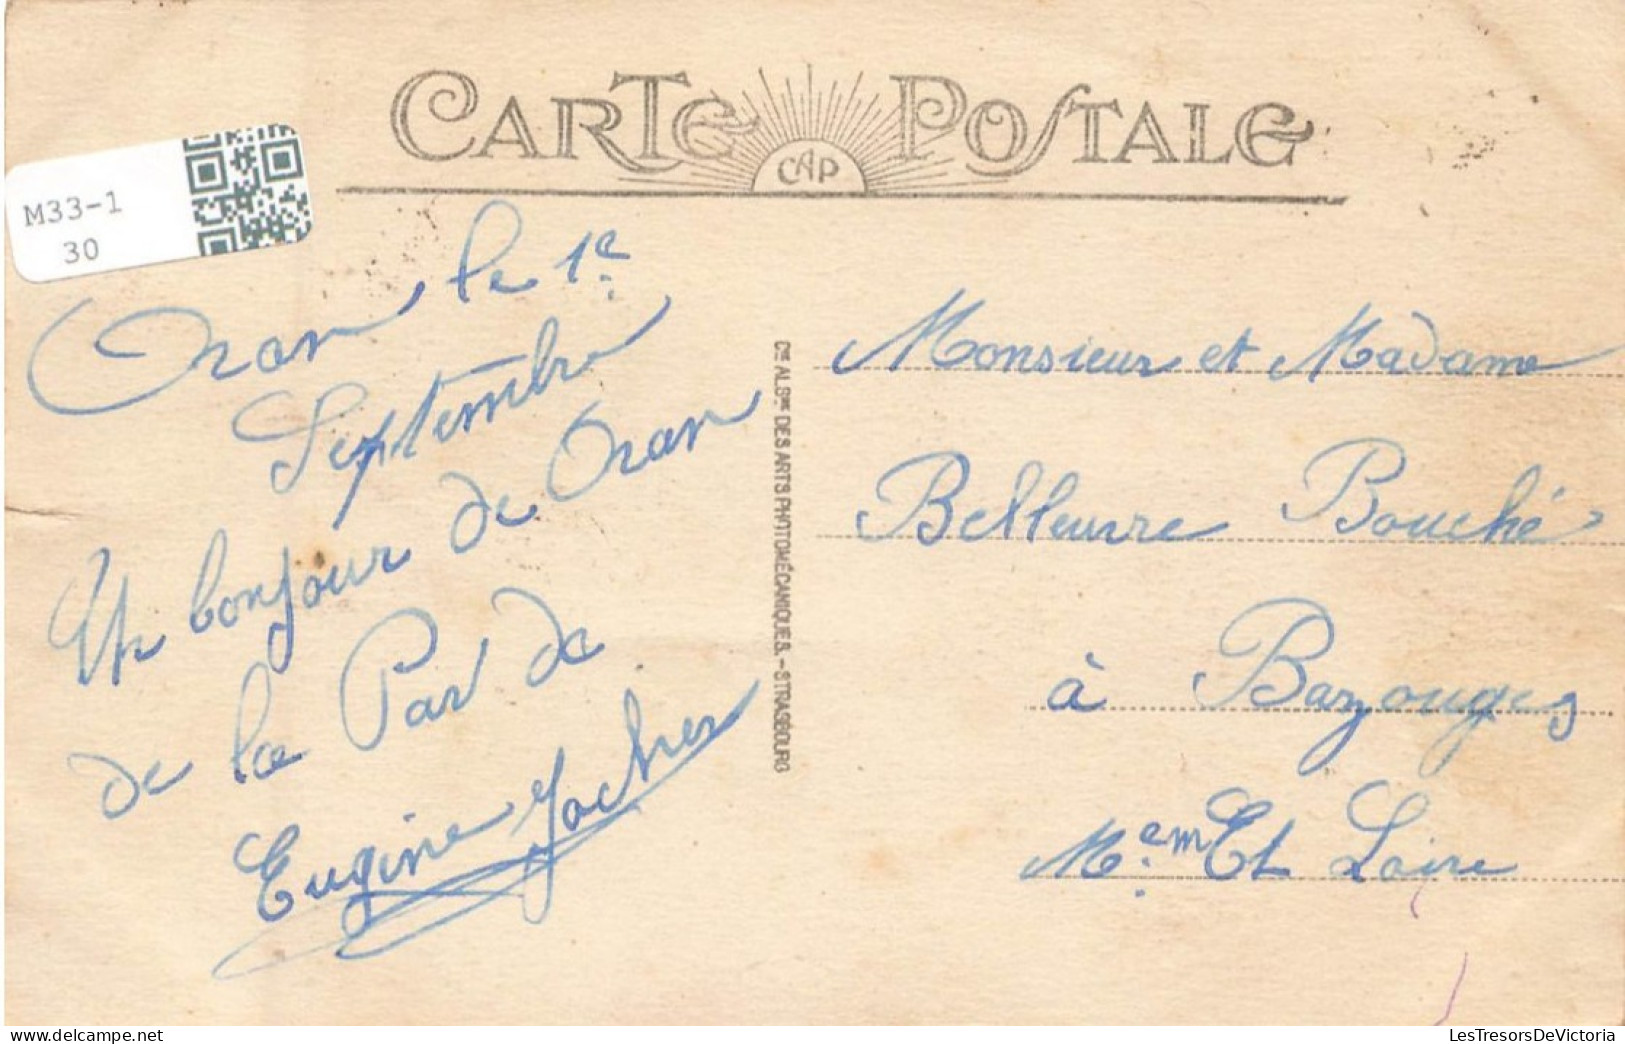 CARTE POSTALE
CAP
M33-1
30
Oran le 1e
Septembre
Un bonjour de Oran
de la Par de
Eugine
Monsieur et Madame
Belleuvre Bouché
à Bazouges
Me.em Et Loire
CIE ALSNE DES ARTS PHOTOMÉCANIQUES. - STRASBOURG
delcampe.net
LesTresorsDeVictoria